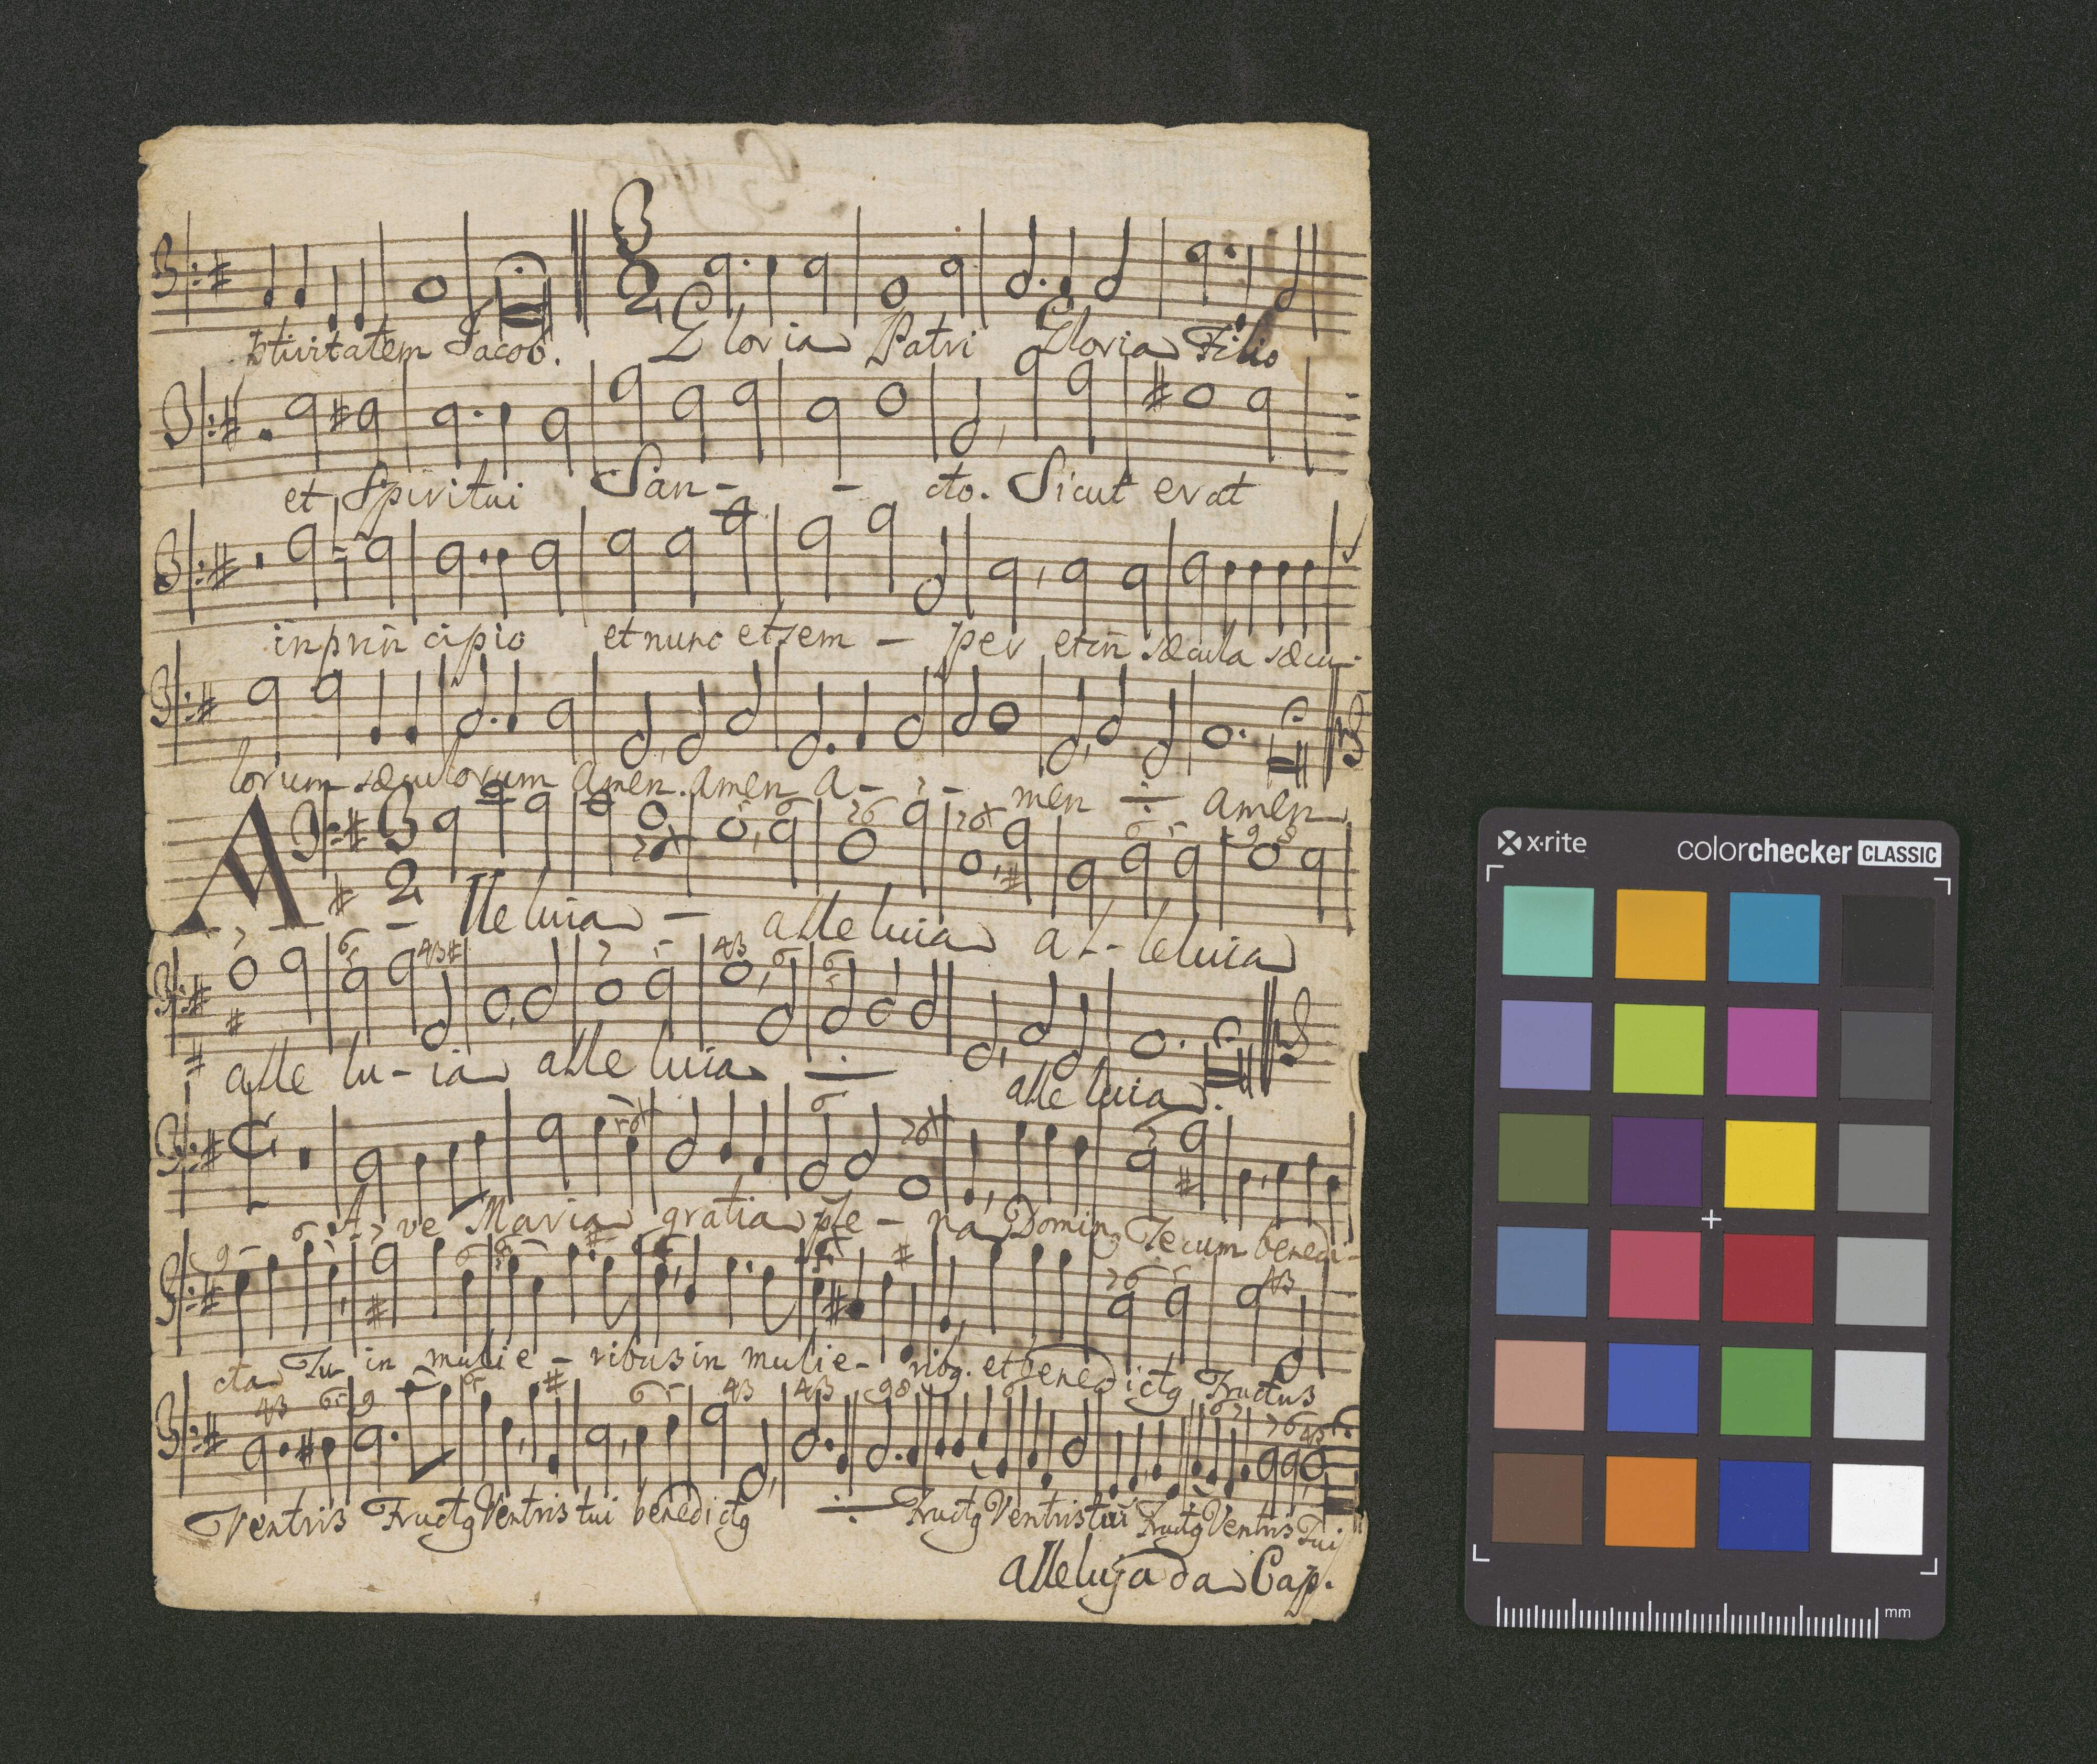 ptivitatem Jacob. Gloria Patri Gloria Filio
et Spiritui San - - cto. Sicut erat
in prin cipio et nunc et sem - per et in sæcula sæcu-
lorum sæculorum amen. amen a - - men amen
A - lleluia - alleluia al - leluia
alle lu - ia alle luia alle luia.
Ave Maria gratia ple - na Domin9 Tecum benedi-
cta Tu in mulie - ribus in mulie - rib9. et benedict9 Fructus
Ventris Fruct9 Ventris tui benedict9 Fruct9 Ventris tui Fruct9 Ventris Tui
alleluja da Cap.
x-rite
colorchecker CLASSIC
mm